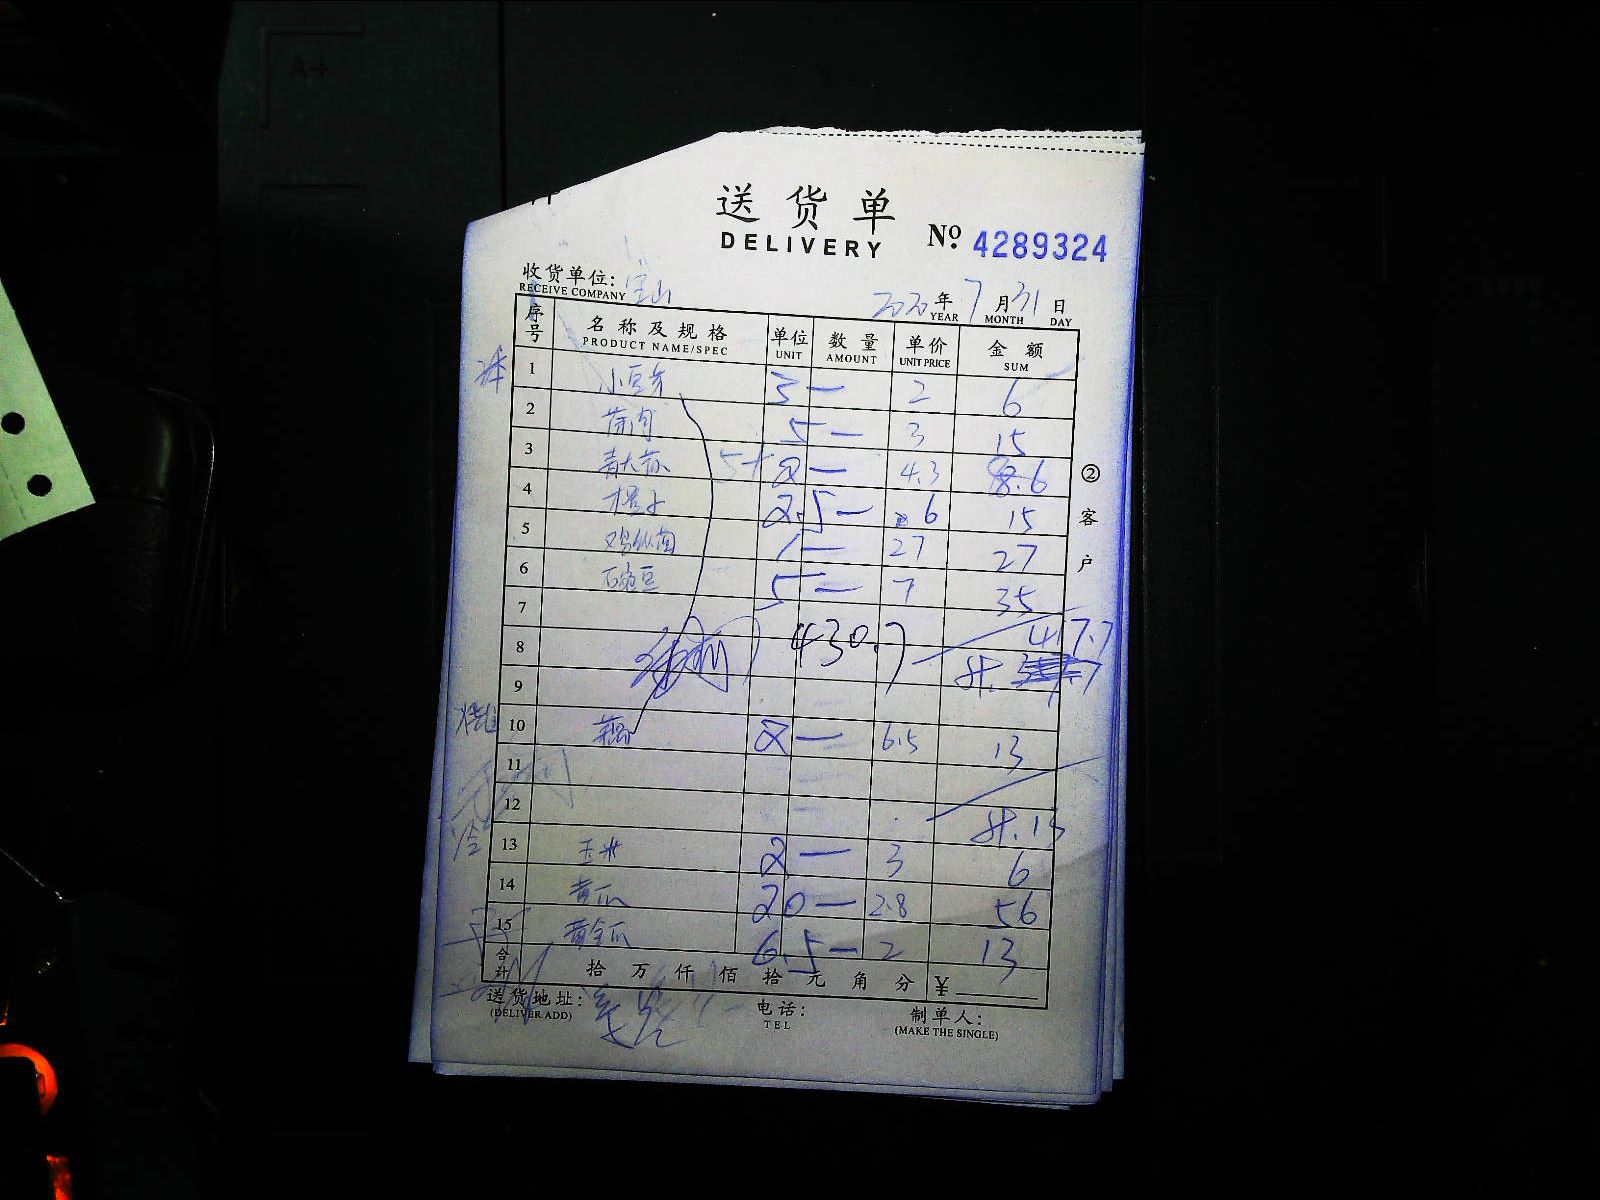 送货单
DELIVERY
No. 4289324
收货单位: 宝山
RECEIVE COMPANY
2020 年 7 月 31 日
YEAR MONTH DAY
序号 名称及规格 单位 数量 单价 金额
PRODUCT NAME/SPEC UNIT AMOUNT UNIT PRICE SUM
1 小豆芽 3— 2 6
2 5— 3 15
3 青大 5+ 2— 4.3 8.6
4 橙子 2.5— 6 15
5 鸡枞菌 1— 27 27
6 5— 7 35
7 417.7
8 430.7
9
10 2— 6.5 13
11
12 计.13
13 玉米 2— 3 6
14 黄瓜 20— 2.8 56
15 黄金瓜 6.5— 2 13
合计 拾 万 仟 佰 拾 元 角 分 ¥
送货地址:
(DELIVER ADD)
电话:
TEL
制单人:
(MAKE THE SINGLE)
②客户
A4